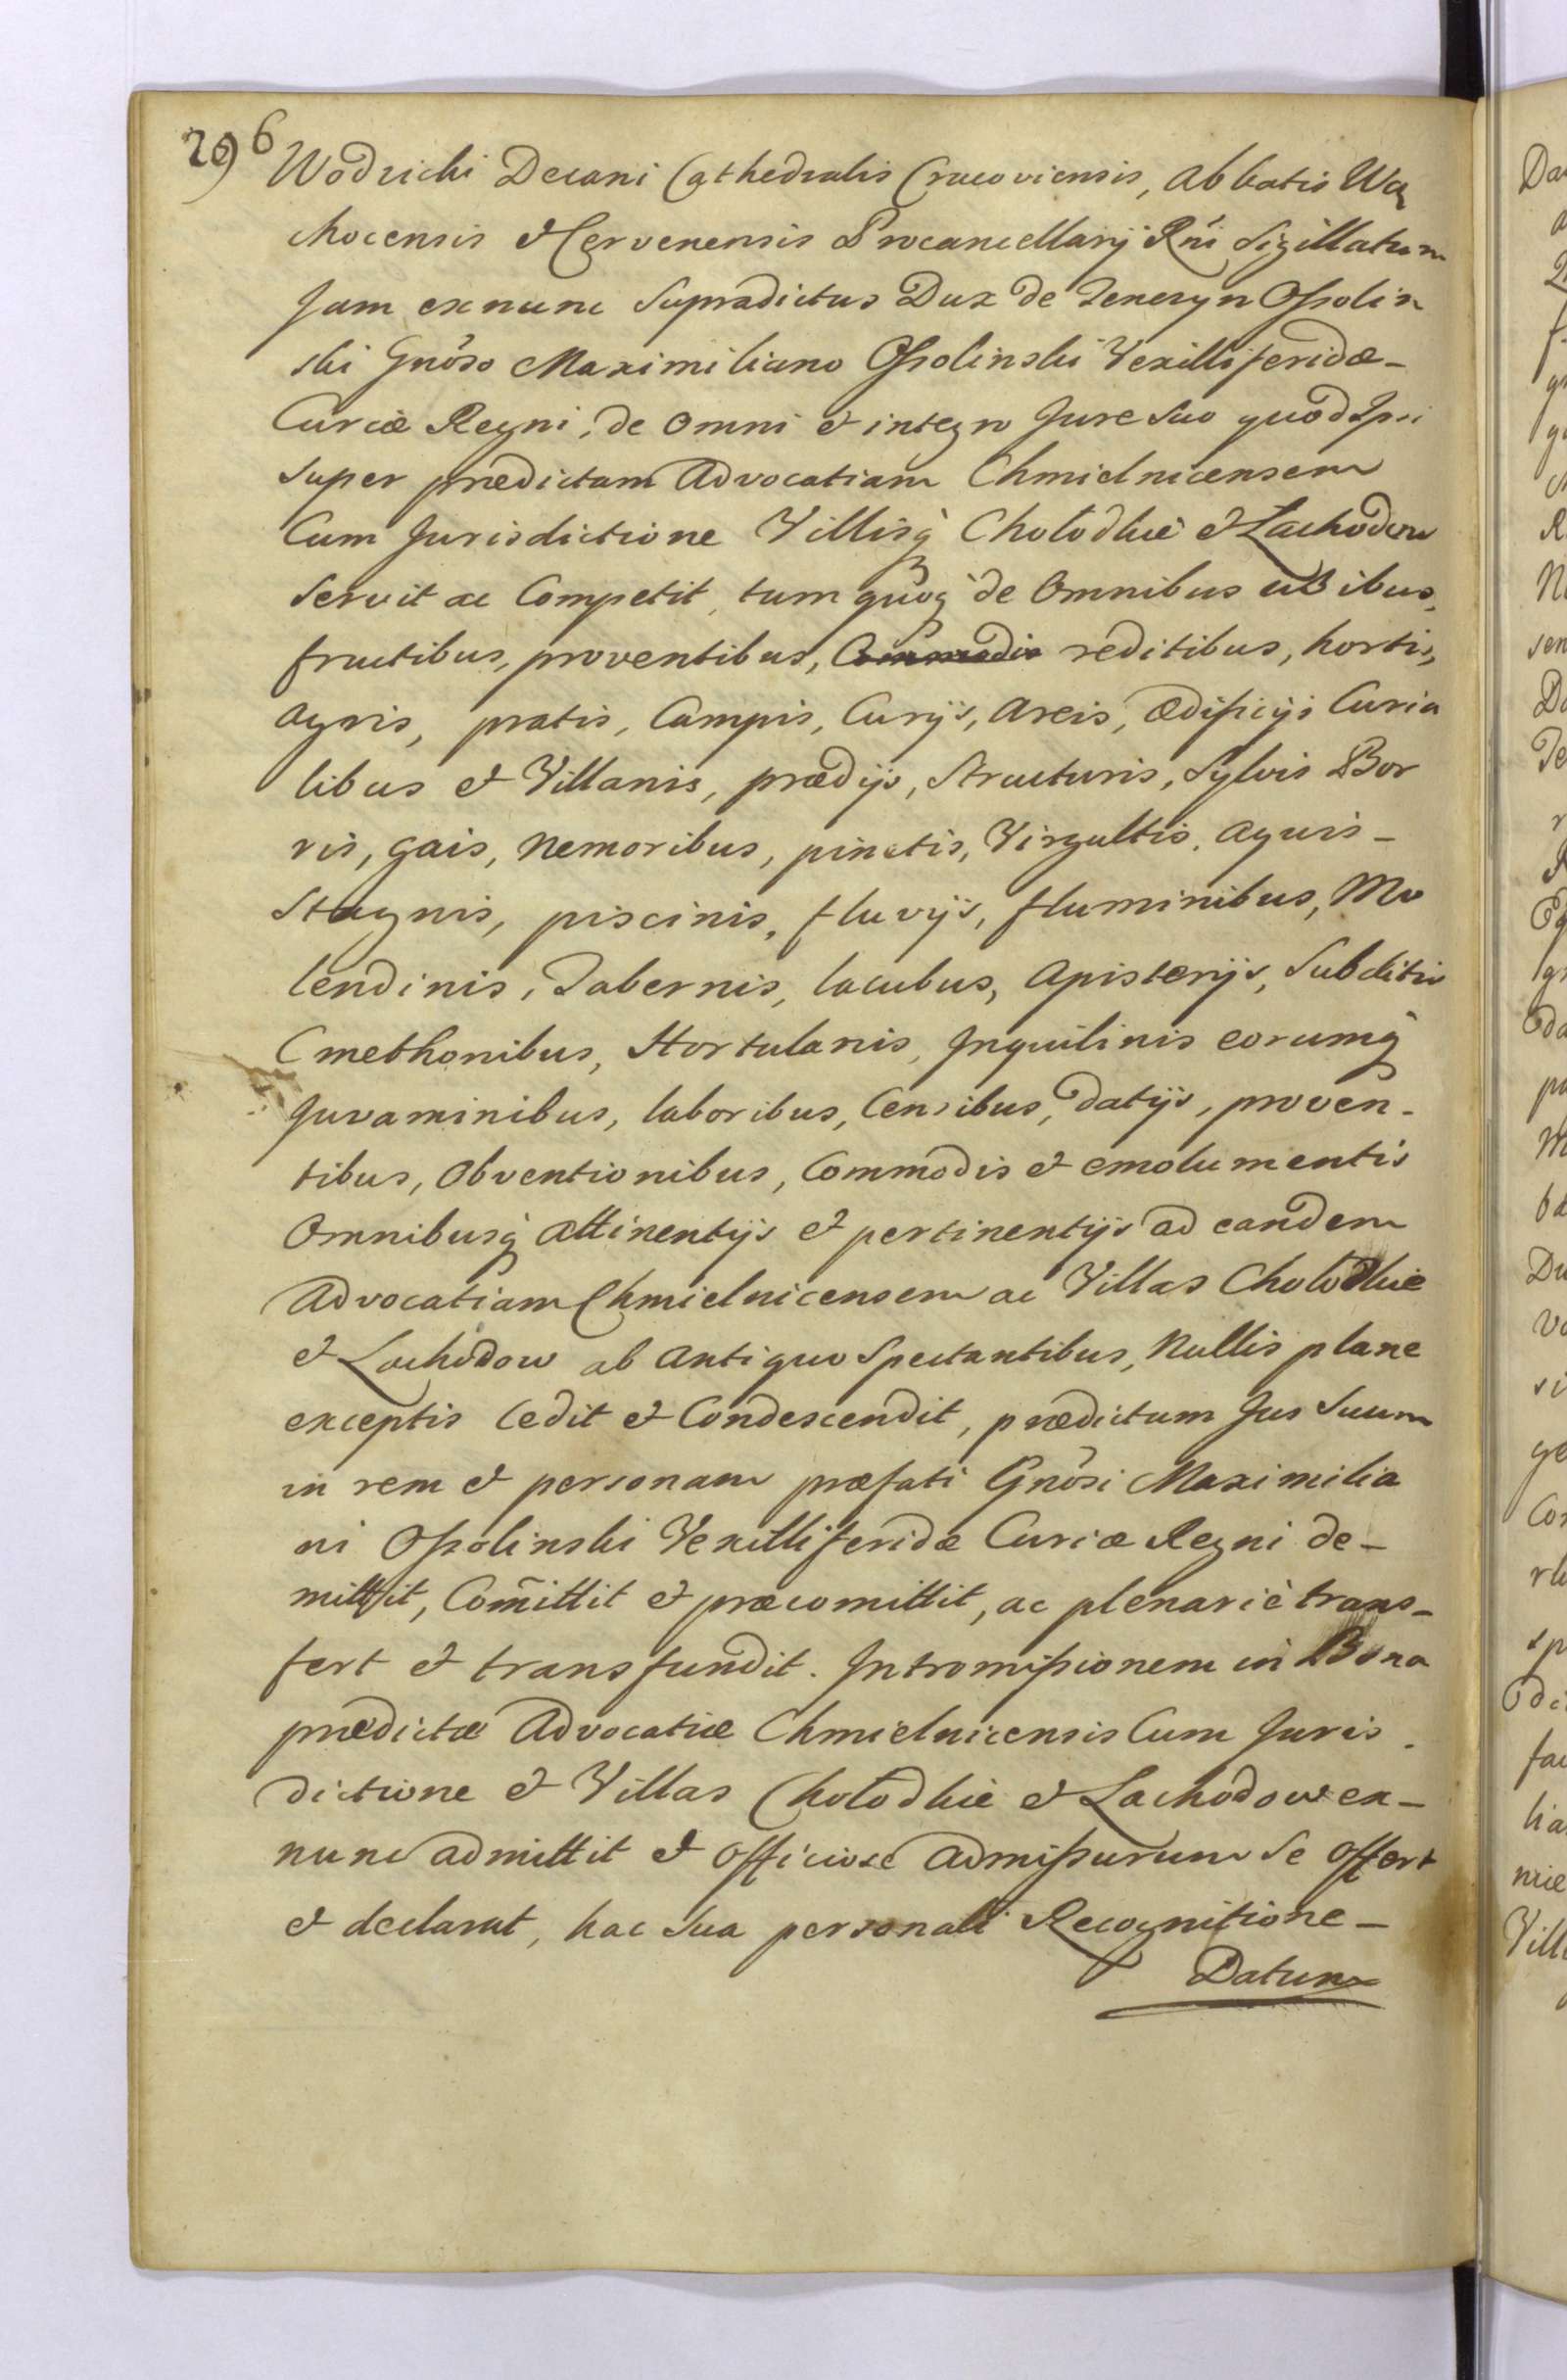 296
Wodzicki Decani Cathedralis Cracoviensis, Abbatis Wą
chocensis et Cervenensis Procancellarij Rñi Sigillatum
Jam exnunc Supradictus Dux de Tenczyn Ossolin
ski Gnõso Maximiliano Ossolinski Vexilliferidæ -
Curiæ Regni, de Omni et integro Jure Suo quod Ipsi
Super prædictam Advocatiam Chmielnicensem
Cum Jurisdictione Villisq̀ Chołodkie et Lachodow
Servit ac Competit, tum quoq̀ de Omnibus usibus,
fructibus, proventibus, Commodis reditibus, hortis,
agris, pratis, Campis, Curijs, Areis, ædificijs Curia
libus et Villanis, prædijs, Structuris, Sylvis Bor
ris, gais, Nemoribus, pinetis, Virgultis, aquis -
Stagnis, piscinis, fluvijs, fluminibus, Mo
lendinis, Tabernis, lacubus, Apisterijs, Subditis
Cmethonibus, Hortulanis, Inquilinis eorumq̀
Juvaminibus, laboribus, Censibus, datijs, proven-
tibus, Obventionibus, Commodis et emolumentis
Omnibusq̀ attinentijs et pertinentijs ad eandem
Advocatiam Chmielnicensem ac Villas Chołodkie
et Lachodow ab Antiquo Spectantibus, Nullis plane
exceptis Cedit et Condescendit, prædictum Jus Suum
in rem et personam præfati Gnõsi Maximilia
ni Ossolinski Vexilliferidæ Curiæ Regni de-
mittit, Com̃ittit et præcomittit, ac plenariè trans-
fert et transfundit. Intromissionem in Bona
prædictæ Advocatiæ Chmielnicensis Cum Juris-
dictione et Villas Chołodkie et Lachodow ex-
nunc admittit et officiose Admissurum Se offert
et declarat, hac Sua personali Recognitione -
Datum